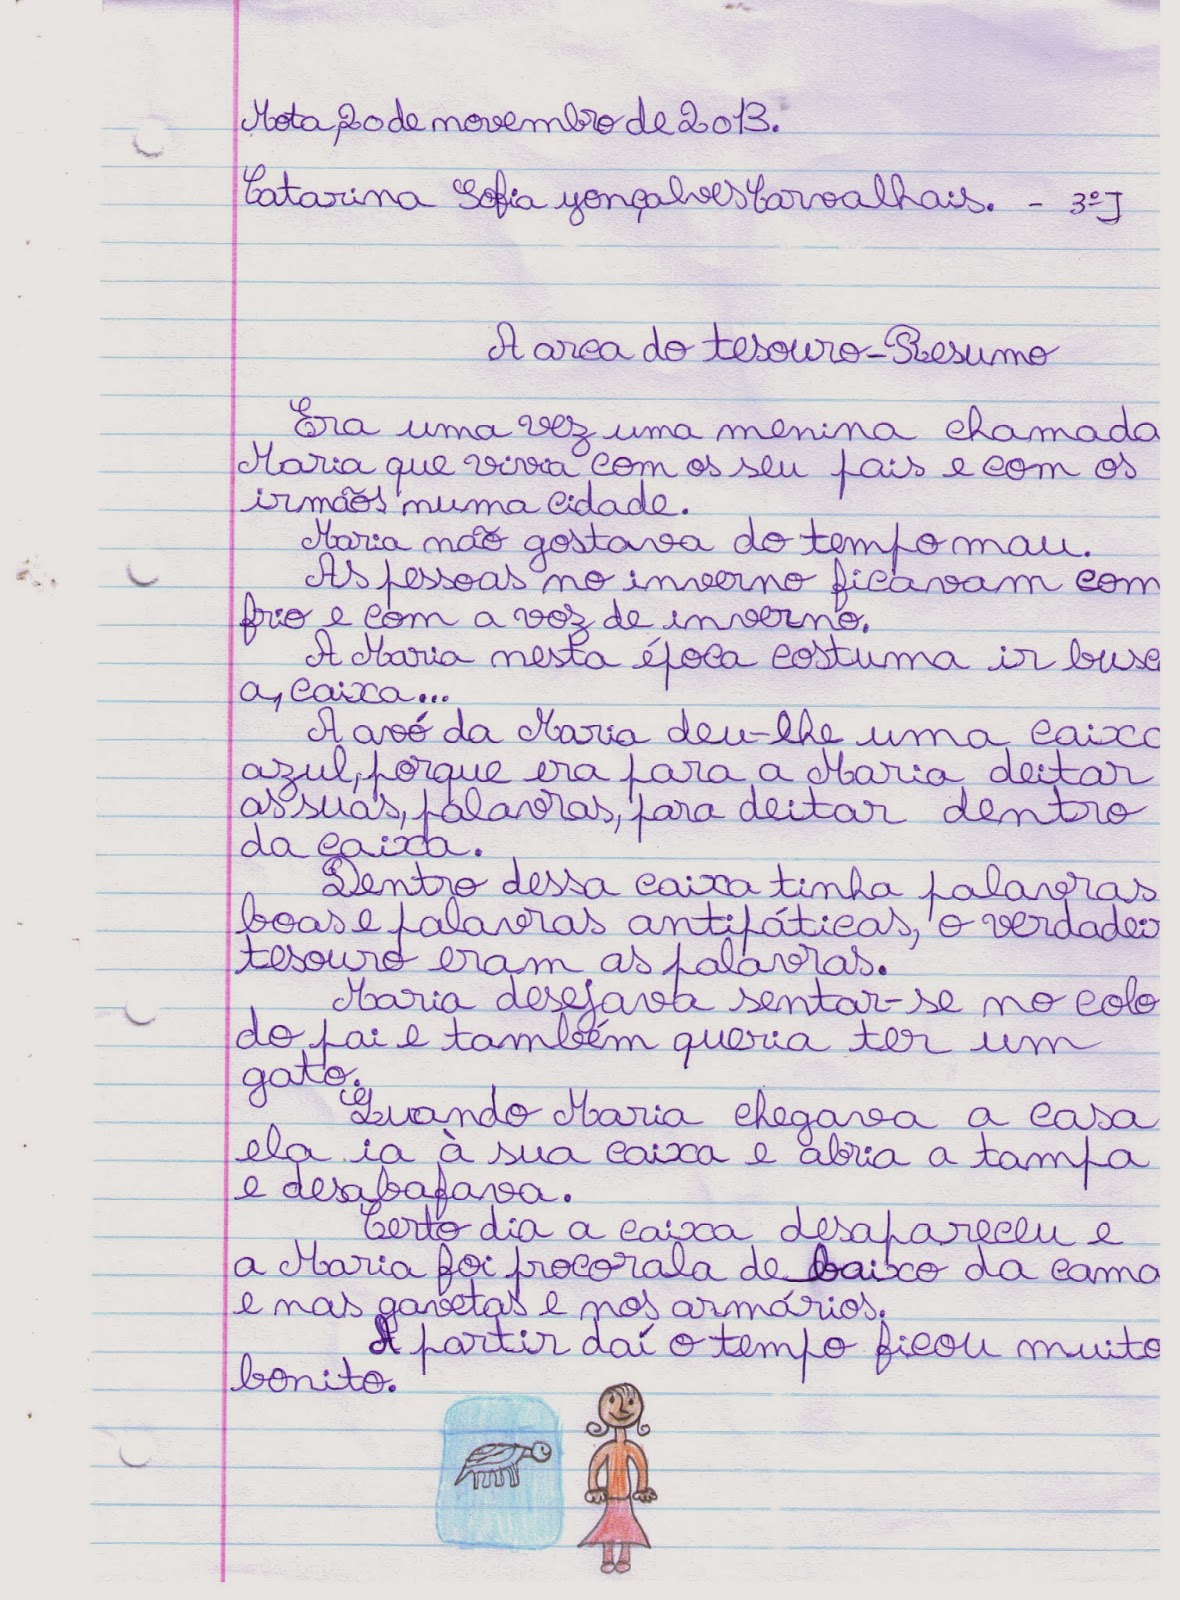 Mota, 20 de novembro de 2013.
Catarina Sofia Gonçalves Carvalhais. - 3º J
A arca do tesouro - Resumo
Era uma vez uma menina chamada
Maria que vivia com os seu pais e com os
irmãos numa cidade.
Maria não gostava do tempo mau.
As pessoas no inverno ficavam com
frio e com a voz de inverno.
A Maria nesta época costuma ir busc
a, caixa...
A avó da Maria deu-lhe uma caixa
azul, porque era para a Maria deitar
as suas, palavras, para deitar dentro
da caixa.
Dentro dessa caixa tinha palavras
boas e palavras antipáticas, o verdadei
tesouro eram as palavras.
Maria desejava sentar-se no colo
do pai e também queria ter um
gato.
Quando Maria chegava a casa
ela ia à sua caixa e abria a tampa
e desabafava.
Certo dia a caixa desapareceu e
a Maria foi procorala de baixo da cama
e nas gavetas e nos armários.
A partir daí o tempo ficou muito
bonito.